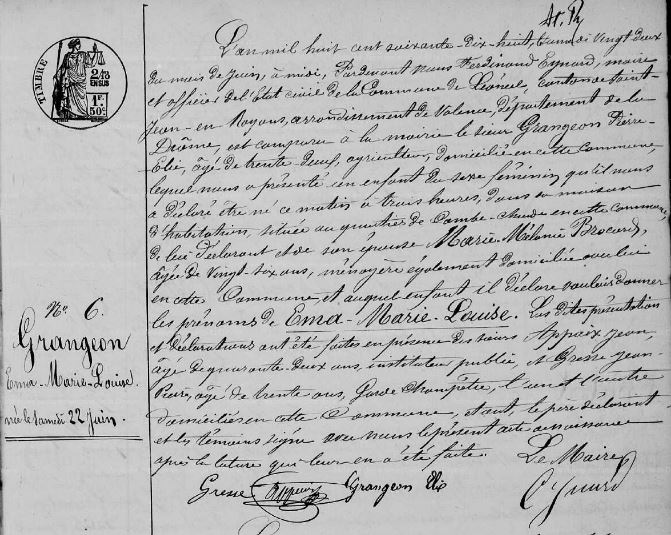 TIMBRE
2/10
EN SUS
1F.
50c
No. 6.
Grangeon
Ema-Marie-Louise.
née le samedi 22 Juin.
L'an mil huit cent soixante-dix-huit, samedi vingt-deux
du mois de Juin, à midi, Pardevant nous Ferdinand Eynard, maire
et officier de l'Etat civil de la Commune de Léoncel, canton de Saint-
Jean-en-Royans, arrondissement de Valence, département de la
Drôme, est comparu à la mairie le sieur Grangeon Pierre-
Elie, âgé de trente-deux, agriculteur, domicilié en cette commune,
lequel nous a présenté un enfant du sexe féminin qu'il nous
a déclaré être né ce matin à trois heures, dans sa maison
d'habitation, située au quartier de Combe-chaude en cette commune,
de lui déclarant et de son épouse Marie-Mélanie Brocard,
âgée de vingt-six ans, ménagère également domiciliée avec lui
en cette Commune, et auquel enfant il déclare vouloir donner
les prénoms de Ema-Marie-Louise. Les dites présentation
et déclaration ont été faites en présence des sieurs Appaix Jean,
âgé de quarante-deux ans, instituteur public, et Gresse Jean
Pierre, âgé de trente ans, Garde champêtre, l'un et l'autre
domiciliés en cette Commune, et ont, le père déclarant
et les témoins signé avec nous le présent acte de naissance
après la lecture qui leur en a été faite.
Le Maire
Gresse Appaix Grangeon Elie Eynard